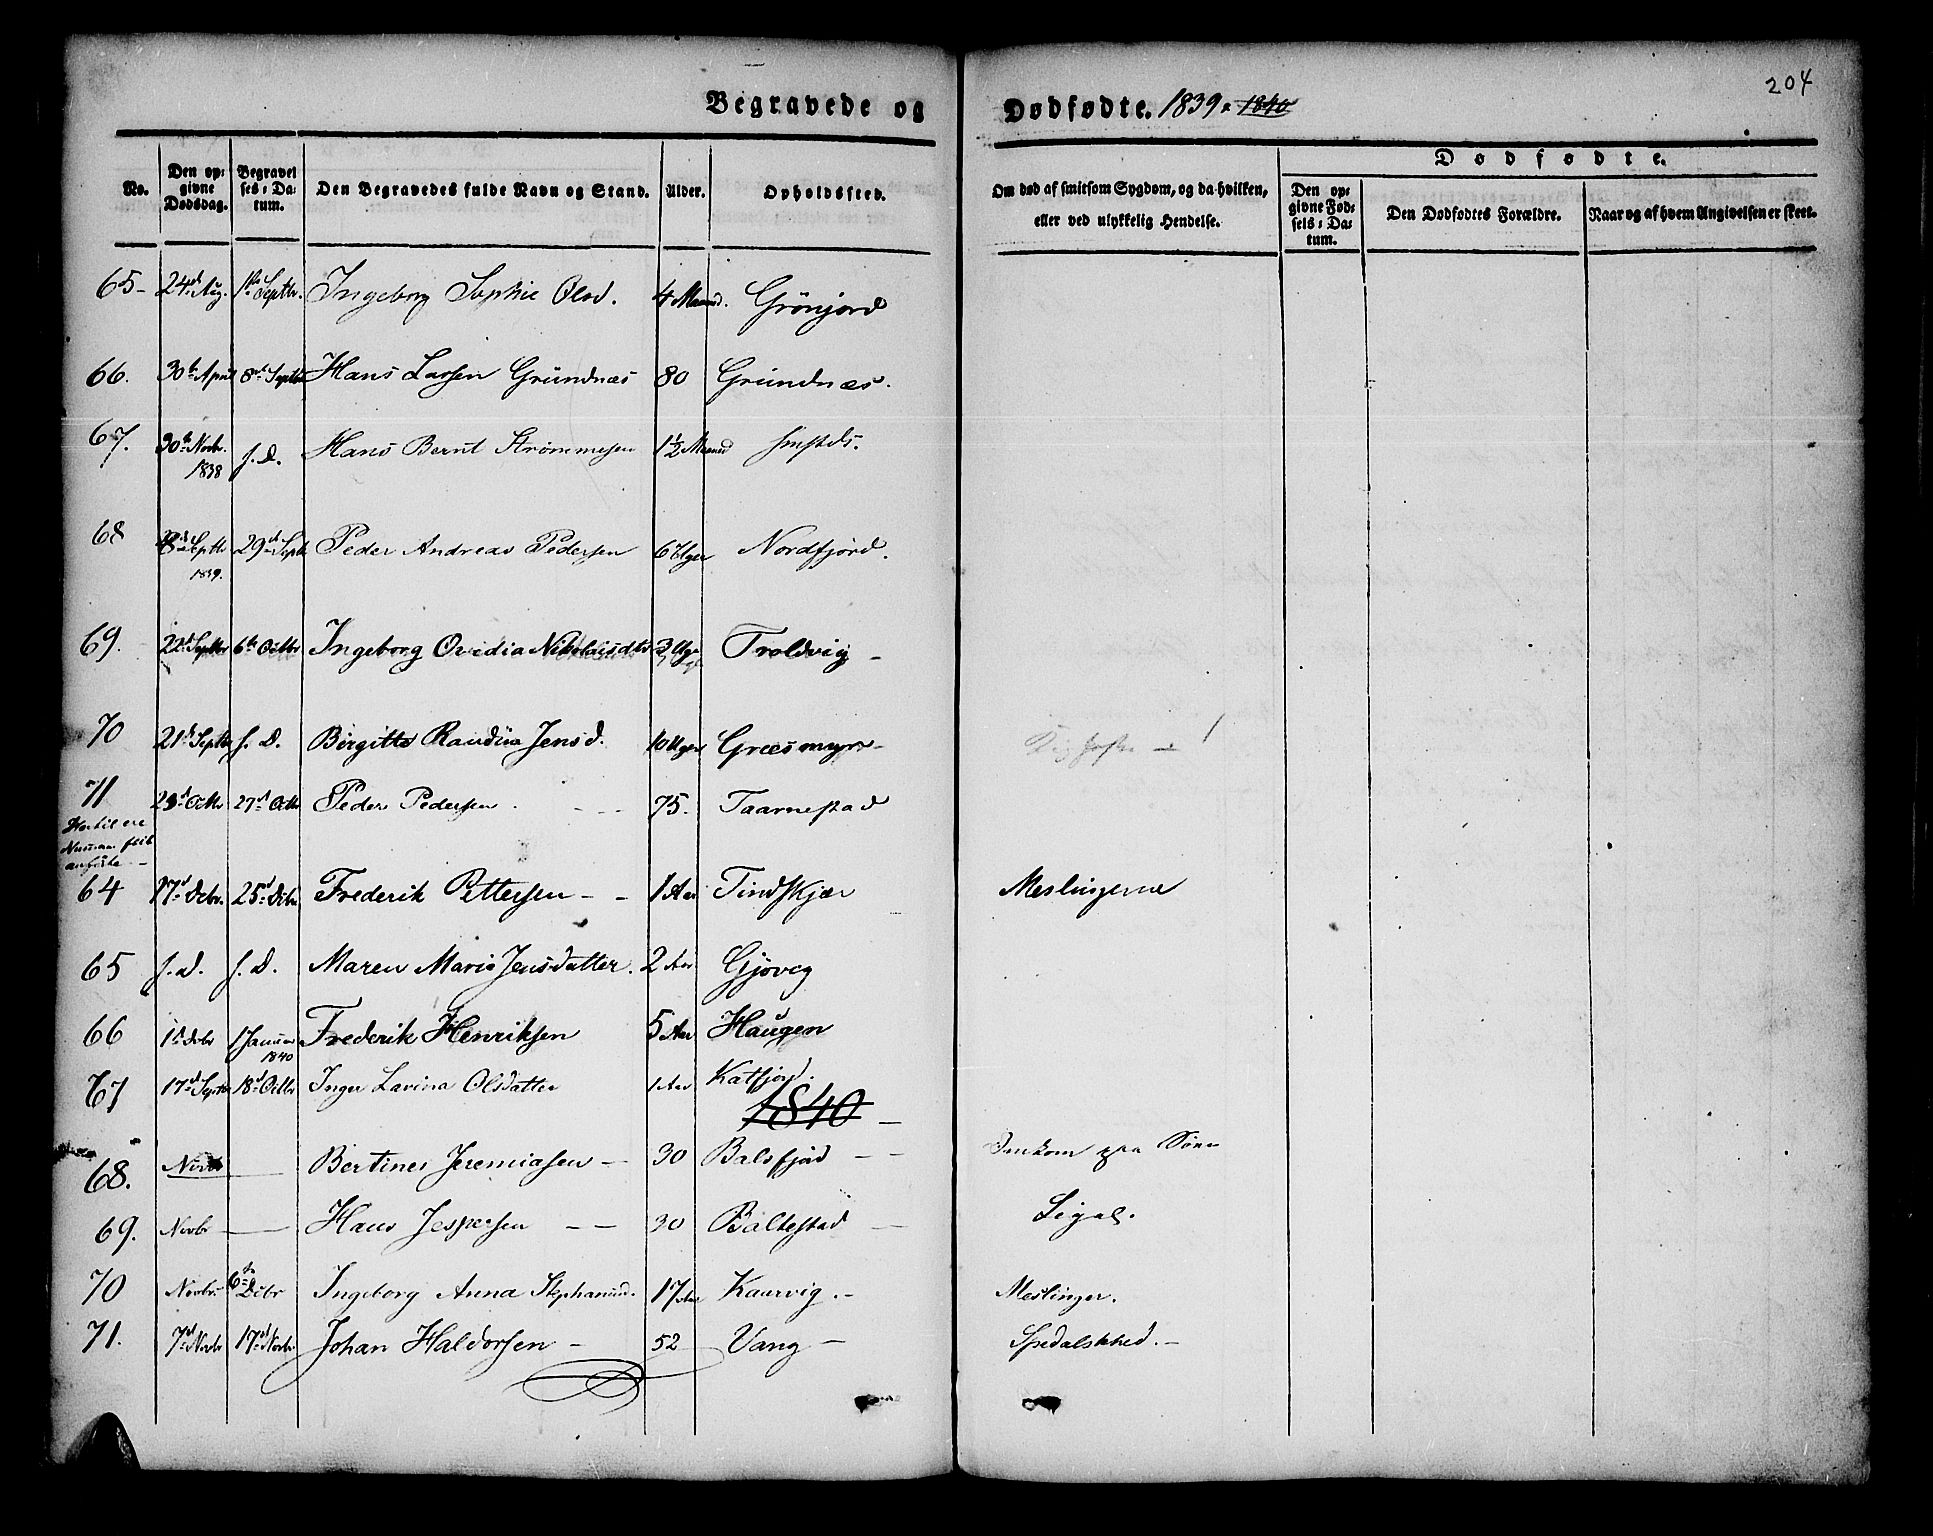 204
Begravede og Dødfødte. 1839. 1840
No. Den opgivne Dødsdag. Begravelses-Datum. Den Begravedes fulde Navn og Stand. Alder. Opholdssted. Om død af smitsom Sygdom, og da hvilken, eller ved ulykkelig Hendelse. Dødfødte. Den opgivne Fødsels-Datum. Den Dødfødtes Forældre. Naar og af hvem Angivelsen er skeet.
65- 24d Aug. 1ste Septbr. Ingeborg Sophie Olsd. 4 Maaned. Grönjord
66. 30te April 8de Septbr Hans Larsen Grundnæs 80 Grundnæs.
67. 30te Novbr. 1838 s. D. Hans Bernt Strømmesen 1½ Maaned
68 Septbr 1839. 29d Septb Peder Andreas Pedersen 6 Uger Nordfjord.
69. 22d Septbr 6te Octbr Ingeborg Ovidia Nikolaisdtr 3 Uger Troldvig -
70 21d Septbr s. D. Birgitte Raudina Jensd. 10 Uger Græsmyr-
71 Octbr 27d Octbr Peder Pedersen. - - 75. Taarnestad
Hertil ere
64 17d Debr. 25d Debr Frederik Pettersen - - 1 Aar Tindskjær Meslingerne
65 s. d. s. D. Maren Marie Jensdatter. 2 Aar Gjøveg
66 1ste Debr 1 Januar 1840 Frederik Henriksen 5 Aar Haugen
67 17d Septbr 18d Octbr Inger Lavina Olsdatter 1 Aar Katfjord.
1840 -
68. Novbr — Bertines Jeremiasen - 30 Balsfjord - - Omkom paa Søen
69. Novbr — Hans Jespersen - - 30 Baltestad - Ligel.
70 Novbr. 6te Debr Ingeborg Anna Stephanusd. 17 Aar Kaarvig. - Meslinger.
71. 7d Novbr 17d Novbr. Johan Haldorsen - 52 Vang - Spedalskhed. -